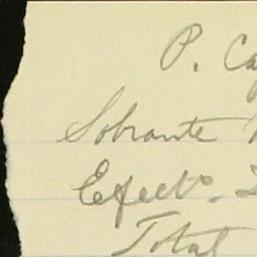 P. Ca
Sobrante
Efects.
Total